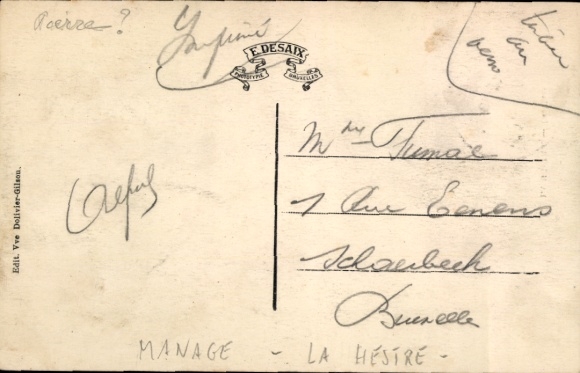 Pierre?
Imprimé
E. DESAIX
PHOTOTYPIE BRUXELLES
timbre
au
verso
Edit. Vve Dolivier-Gilson.
Mme Fumae
1 Rue Eenens
Schaerbeek
Bruxelles
MANAGE - LA HESTRE -